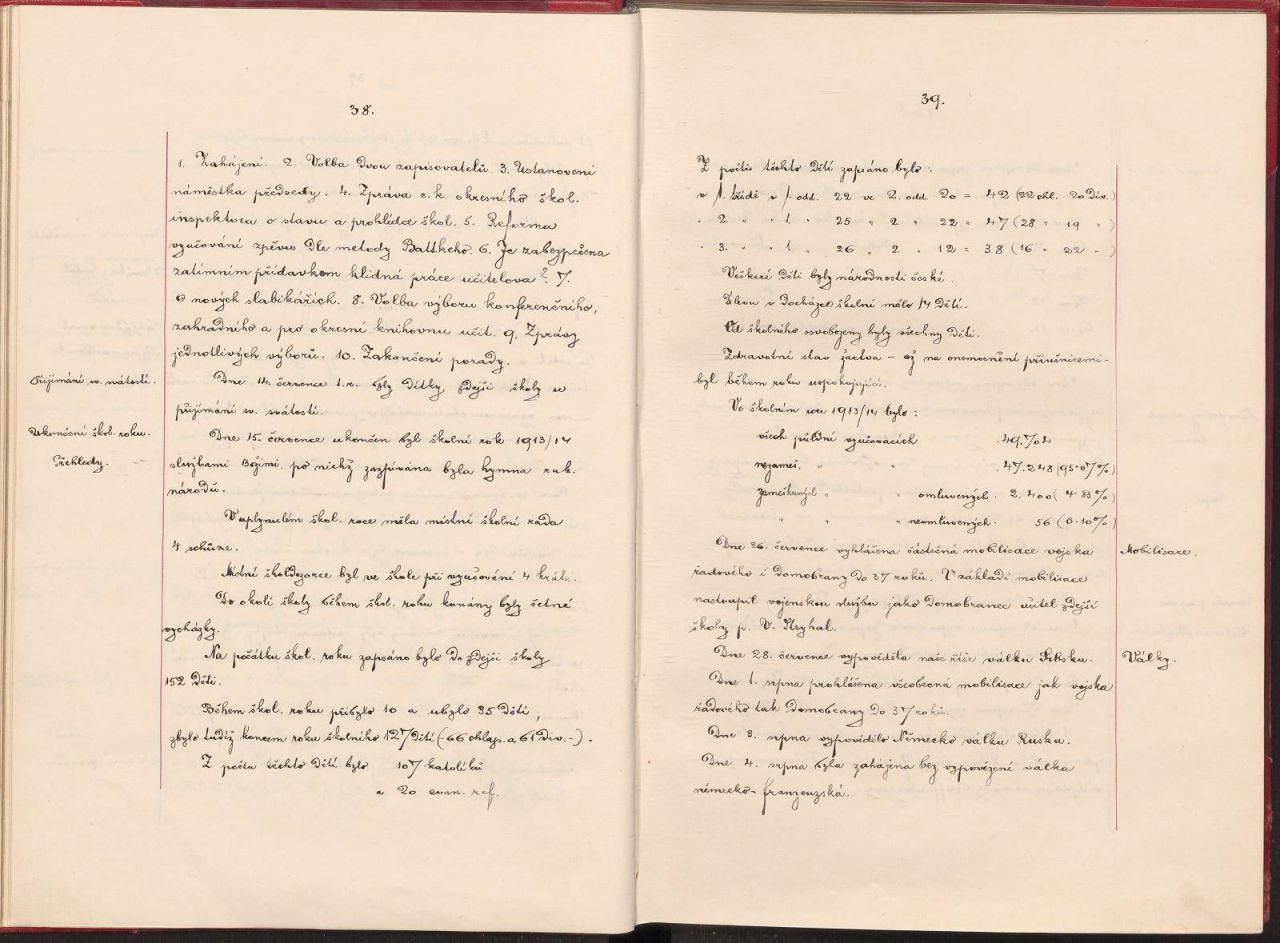 38.
1. Zahájení. 2. Volba dvou zapisovatelů. 3. Ustanovení
náměstka předsedy. 4. Zpráva c. k. okresního škol.
inspektora o stavu a prohlídce škol. 5. Reforma
vyučování zpěvu dle metody Battkeho. 6. Je zabezpečena
zatímním přídavkem klidná práce učitelova? 7.
O nových slabikářích. 8. Volba výboru konferenčního,
zahradního a pro okresní knihovnu učit. 9. Zprávy
jednotlivých výborů. 10. Zakončení porady.
Přijímání sv. svátostí.
Dne 14. července t. r. byly dítky zdejší školy u
přijímání sv. svátostí.
Ukončení škol. roku.
Dne 15. července ukončen byl školní rok 1913/14
Přehledy.
službami Božími, po nichž zazpívána byla hymna rak.
národů.
V uplynulém škol. roce měla místní školní rada
4 schůze.
Místní školdozorce byl ve škole při vyučování 4 kráte.
Do okolí školy během škol. roku konány byly četné
vycházky.
Na počátku škol. roku zapsáno bylo do zdejší školy
152 dětí.
Během škol. roku přibylo 10 a ubylo 35 dětí,
zbylo tudíž koncem roku školního 127 dětí (-66 chlap. a 61 div.-).
Z počtu těchto dětí bylo 107 katolíků
a 20 evan. ref.
39.
Z počtu těchto dětí zapsáno bylo:
v 1. třídě v 1. odd. 22 ve 2. odd. 20 = 42 (22 chl. 20 div.)
" 2. " " 1 " 25 " 2 " 22 = 47 (28 " 19 " )
" 3. " " 1 " 26 " 2 " 12 = 38 (16 " 22 " )
Veškeré děti byly národnosti české.
Úlevu v docházce školní mělo 14 dětí.
Od školného osvobozeny byly všechny děti.
Zdravotní stav žactva – až na onemocnění příušnicemi –
byl během roku uspokojující.
Ve školním roce 1913/14 bylo:
všech půldní vyučovacích 49.704
nezameš. " " 47.248 (95.07%)
zameškaných " " omluvených 2.400 (4.83%)
" " " neomluvených 56 (0.10%)
Dne 26. července vyhlášena částečná mobilisace vojska
Mobilisace.
řadového i domobrany do 37 roků. V základě mobilisace
nastoupil vojenskou službu jako domobranec učitel zdejší
školy p. V. Stryhal.
Dne 28. července vypověděla naše říše válku Srbsku.
Války.
Dne 1. srpna prohlášena všeobecná mobilisace jak vojska
řadového tak domobrany do 37 roků.
Dne 3. srpna vypovědělo Německo válku Rusku.
Dne 4. srpna byla zahájena bez vypovězení válka
německo-francouzská.